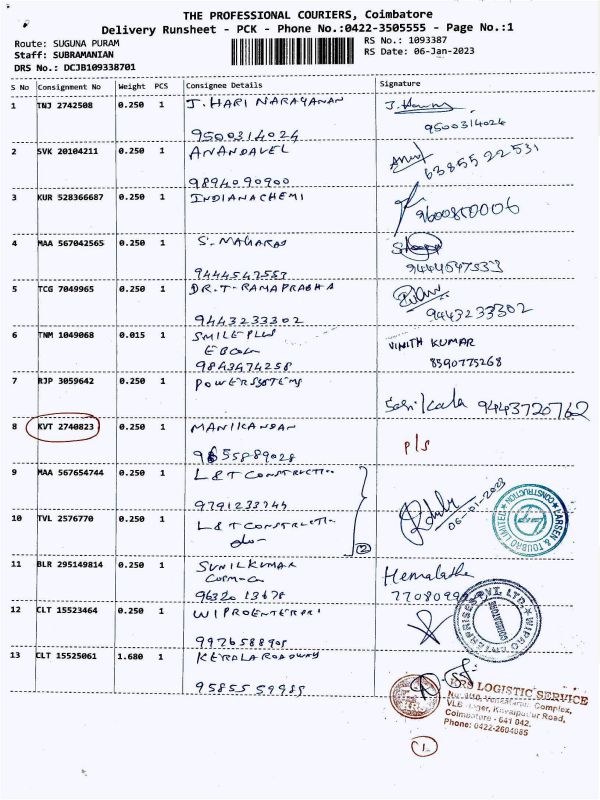 THE PROFESSIONAL COURIERS, Coimbatore
Delivery Runsheet - PCK - Phone No.:0422-3505555 - Page No.:1
Route: SUGUNA PURAM
RS No.: 1093387
Staff: SUBRAMANIAN
RS Date: 06-Jan-2023
DRS No.: DCJB109338701
S No Consignment No Weight PCS Consignee Details Signature
1 TNJ 2742508 0.250 1 J. HARI NARAYANAN
9500314024 9500314024
2 SVK 20104211 0.250 1 ANANDAVEL
9894090900 6385522531
3 KUR 528366687 0.250 1 INDIANACHEMI
9600850006
4 MAA 567042565 0.250 1 S.
5 TCG 7049965 0.250 1 DR.T-RAMAPRABHA
9443233302 9443233302
6 TNM 1049068 0.015 1 SMILE PLUS VINITH KUMAR
9843474258 8590775268
7 RJP 3059642 0.250 1 POWERSSOTEMS
Sasikala 94443720762
8 KVT 2740823 0.250 1 MANIKANDAN P/S
9655889028
9 MAA 567654744 0.250 1 L&T CONSTRUCTIO
9791233744 06-01-2023
LARSEN & TOUBRO LIMITED CONSTRUCTION
10 TVL 2576770 0.250 1 L&T CONSTRUCTI
do- 2
11 BLR 295149814 0.250 1 SUNILKUMAR Hemalatha
96320 13678
12 CLT 15523464 0.250 1 WIPROENTERPRI
WIPRO ENTERPRISES PVT. LTD.
COIMBATORE
13 CLT 15525061 1.680 1 KERALA ROADWAY
9585559985
KRS LOGISTIC SERVICE
Complex,
Road,
Coimbatore - 641 042.
Phone: 0422-2604085